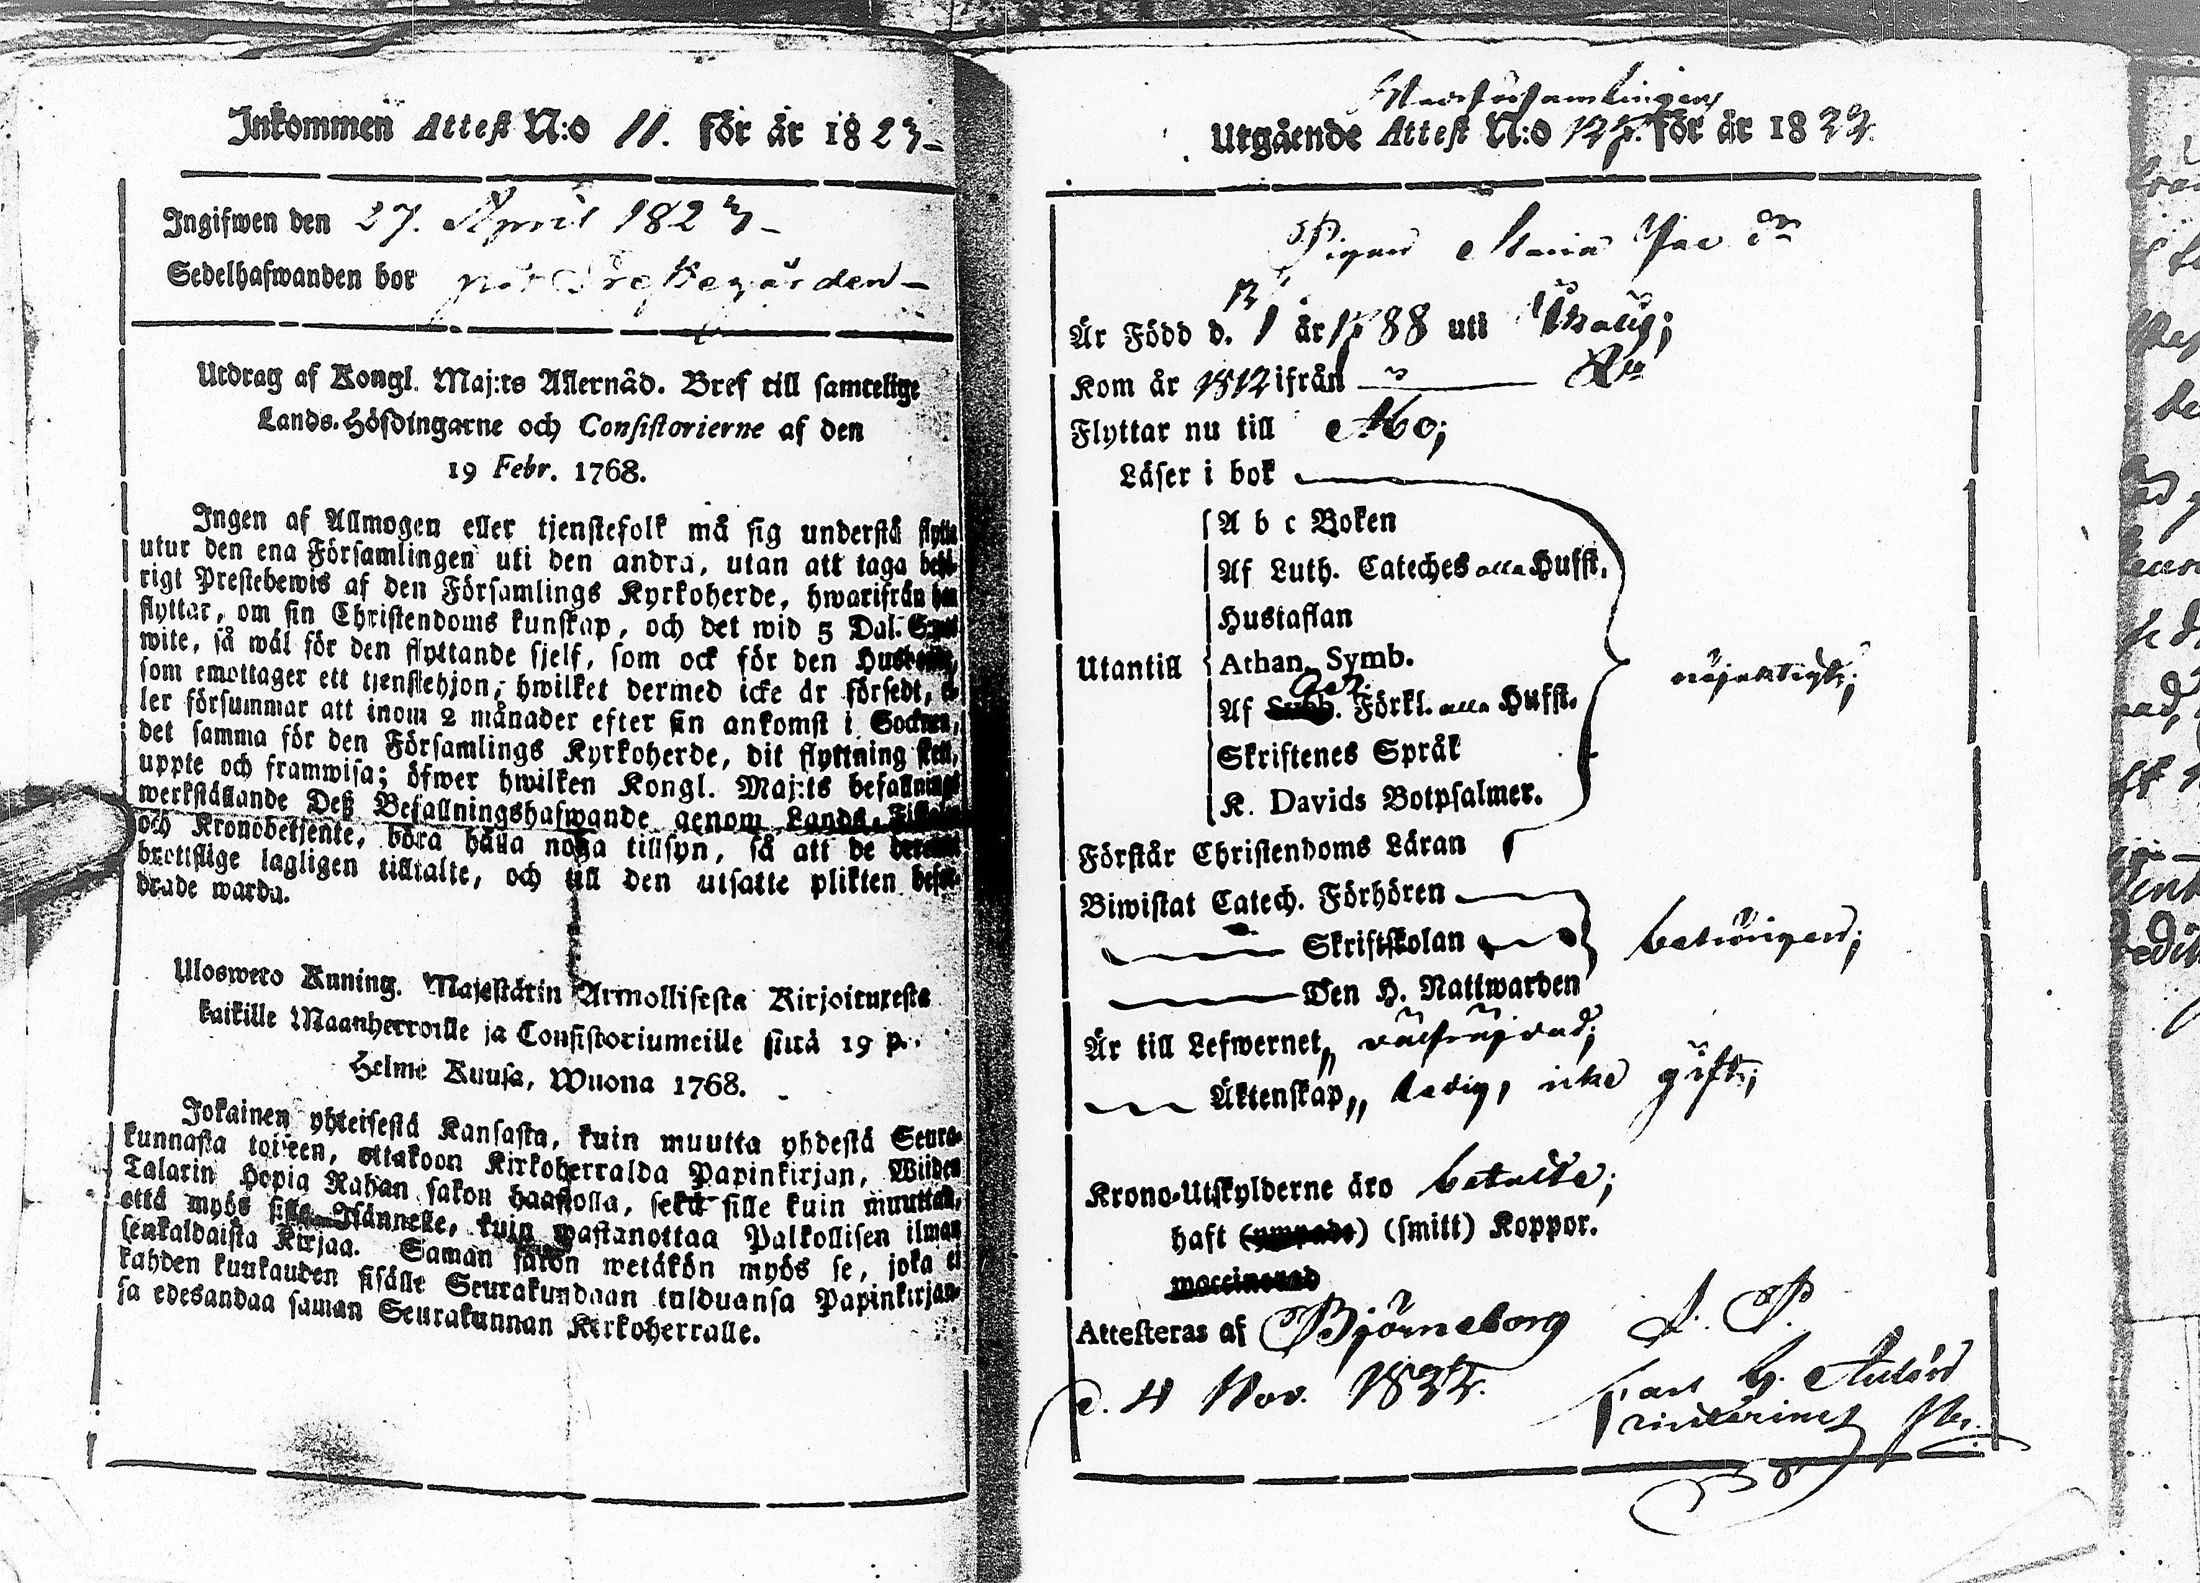 Inkommen Attest N:o 11. för år 1823
Ingifwen den 27. April 1823
Sedelhafwanden bor på Prestegården
Utdrag af Kongl. Maj:ts Allernåd. Bref till samtelige
Lands-Höfdingarne och Consistorierne af den
19 Febr. 1768.
Ingen af Allmogen eller tjenstefolk må sig understå flytta
utur den ena Församlingen uti den andra, utan att taga behö-
rigt Prestebewis af den Församlings Kyrkoherde, hwarifrån han
flyttar, om sin Christendoms kunskap, och det wid 5 Dal. S:mt
wite, så wäl för den flyttande sjelf, som ock för den
som emottager ett tjenstehjon, hwilket dermed icke är försedt, el-
ler försummar att inom 2 månader efter sin ankomst i Socknen,
det samma för den Församlings Kyrkoherde, dit flyttning skett,
uppte och framwisa; öfwer hwilken Kongl. Maj:ts befallnings
werkställande Deß Befallningshafwande genom Lands-Fiskaler
och Kronobetjente, böra hålla noga tillsyn, så att de deremot
brottslige lagligen tilltalte, och till den utsatte plikten befor-
drade warda.
Ulosweto Kuning. Majestätin Armollisesta Kirjoituxesta
kaikille Maanherroille ja Consistoriumeille siitä 19 p.
Helme Kuusa, Wuona 1768.
Jokainen yhteisestä Kansasta, kuin muutta yhdestä Seura-
kunnasta toiseen, ottakoon Kirkoherralda Papinkirjan, Wiiden
Talarin Hopia Rahan sakon haastolla, sekä sille kuin muuttaa,
että myös sille Isännelle, kuin wastanottaa Palkollisen ilman
senkaldaista Kirjaa. Saman sakon wetäkön myös se, joka ei
kahden kuukauden sisälle Seurakundaan tulduansa Papinkirjan-
sa edesandaa saman Seurakunnan Kirkoherralle.
Stadsförsamlingens
Utgående Attest N:o för år 1822.
Pigan Maria
Är Född d. år 1788 uti
Kom år 1812 ifrån
Flyttar nu till Åbo;
Läser i bok
A b c Boken
Af Luth. Cateches alla Hufst.
Hustaflan
Utantill Athan. Symb.
Af Förkl. alla Hufst.
Skriftenes Språk
K. Davids Botpsalmer.
Förstår Christendoms Läran
Biwistat Catech. Förhören
Skriftskolan
Den H. Nattwarden
Är till Lefwernet, välfräjdad;
Äktenskap, ledig, icke gift;
Krono-Utskylderne äro betalte;
haft (smitt) Koppor.
Attesteras af Björneborg
d. 4 Nov. 1822.